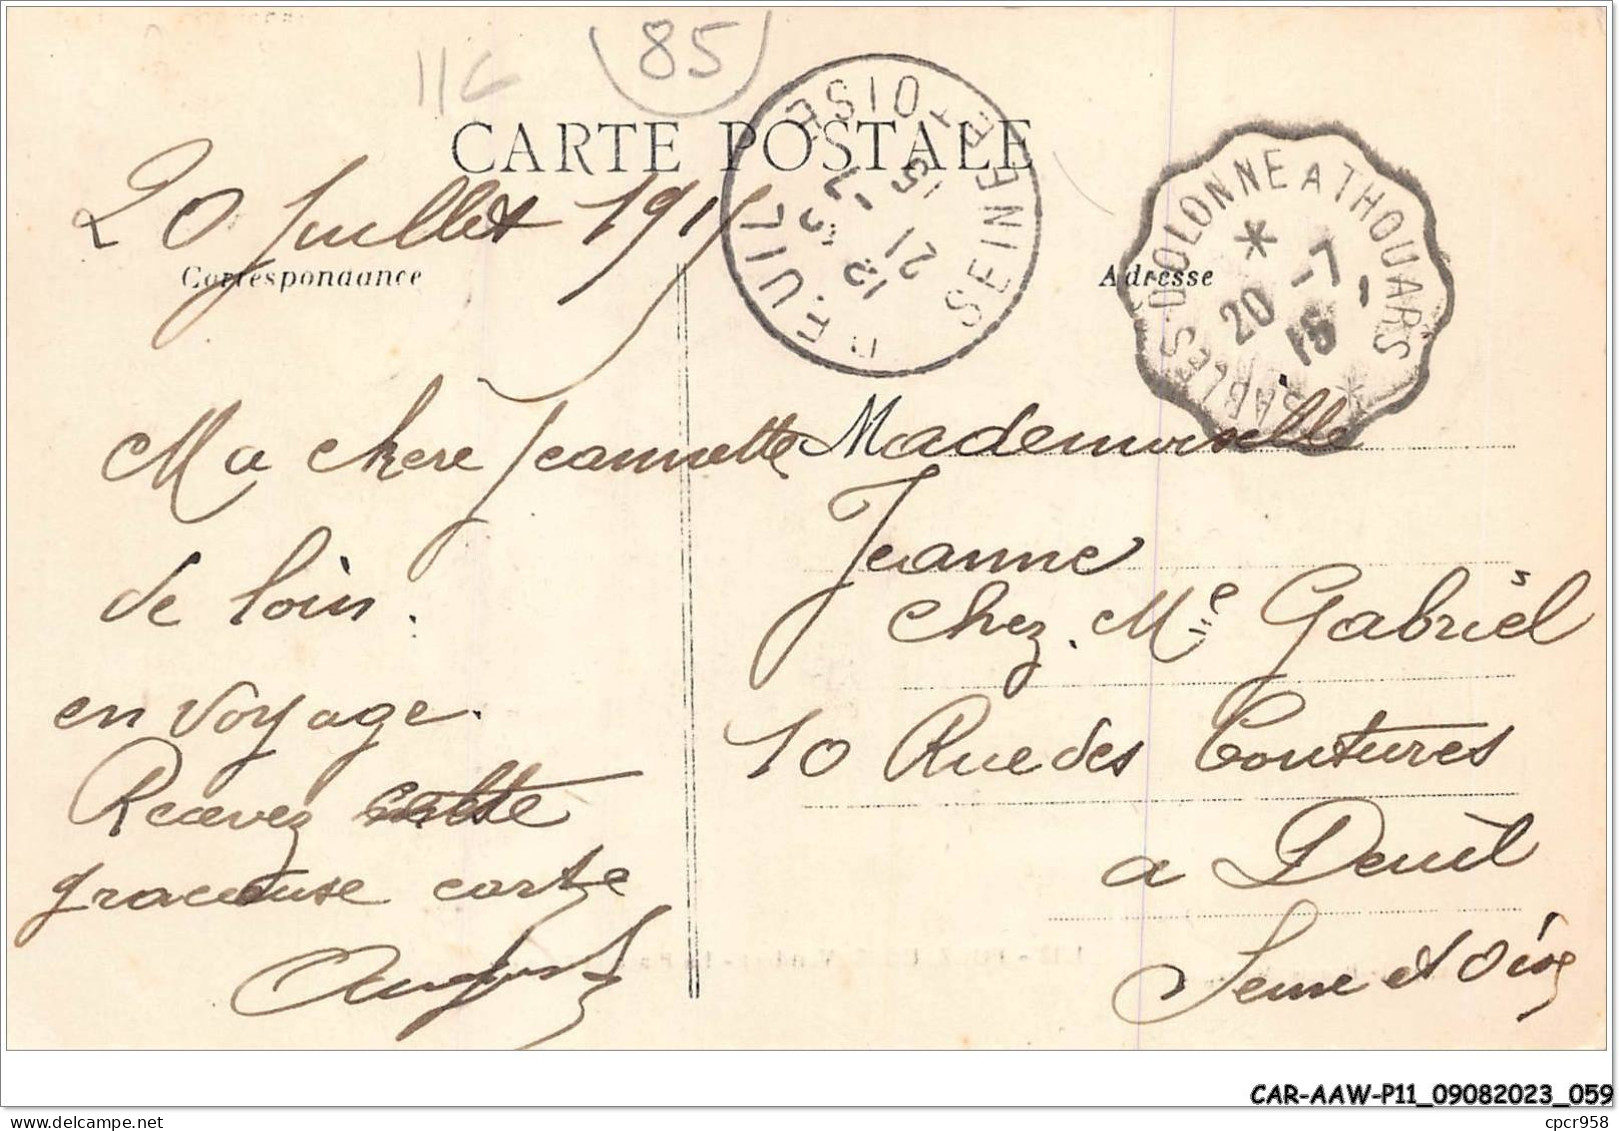 116
85
CARTE POSTALE
20 Juillet 1915
Correspondance
Adresse
DEUIL
SEINE ET OISE
15
21 -7
15
SABLES-D'OLONNE A THOUARS
20 -7
15
Ma chère Jeannette
de loin.
en voyage.
Recevez cette
gracieuse carte
August
Mademoiselle
Jeanne
chez. Me Gabriel
10 Rue des Coutures
a Deuil
Seine et Oise
CAR-AAW-P11_09082023_059
cpcr958